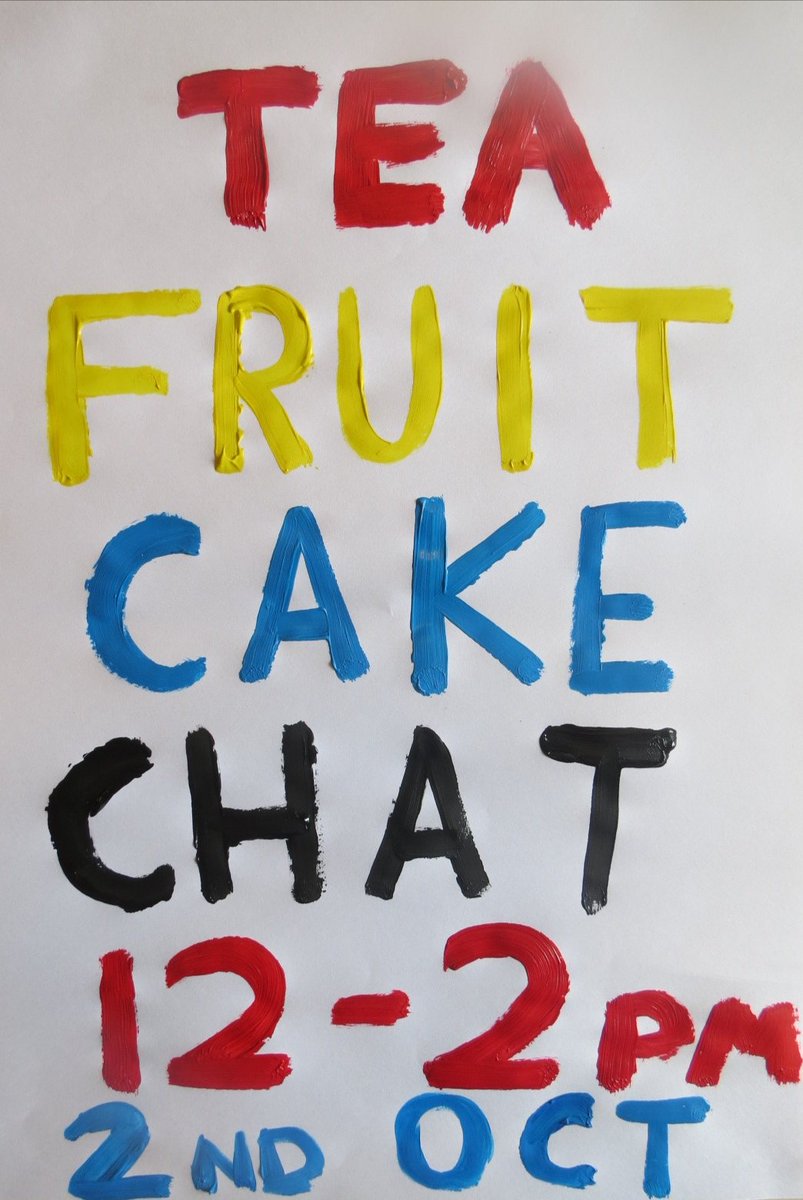 TEA
FRUIT
CAKE
CHAT
12-2PM
2ND OCT